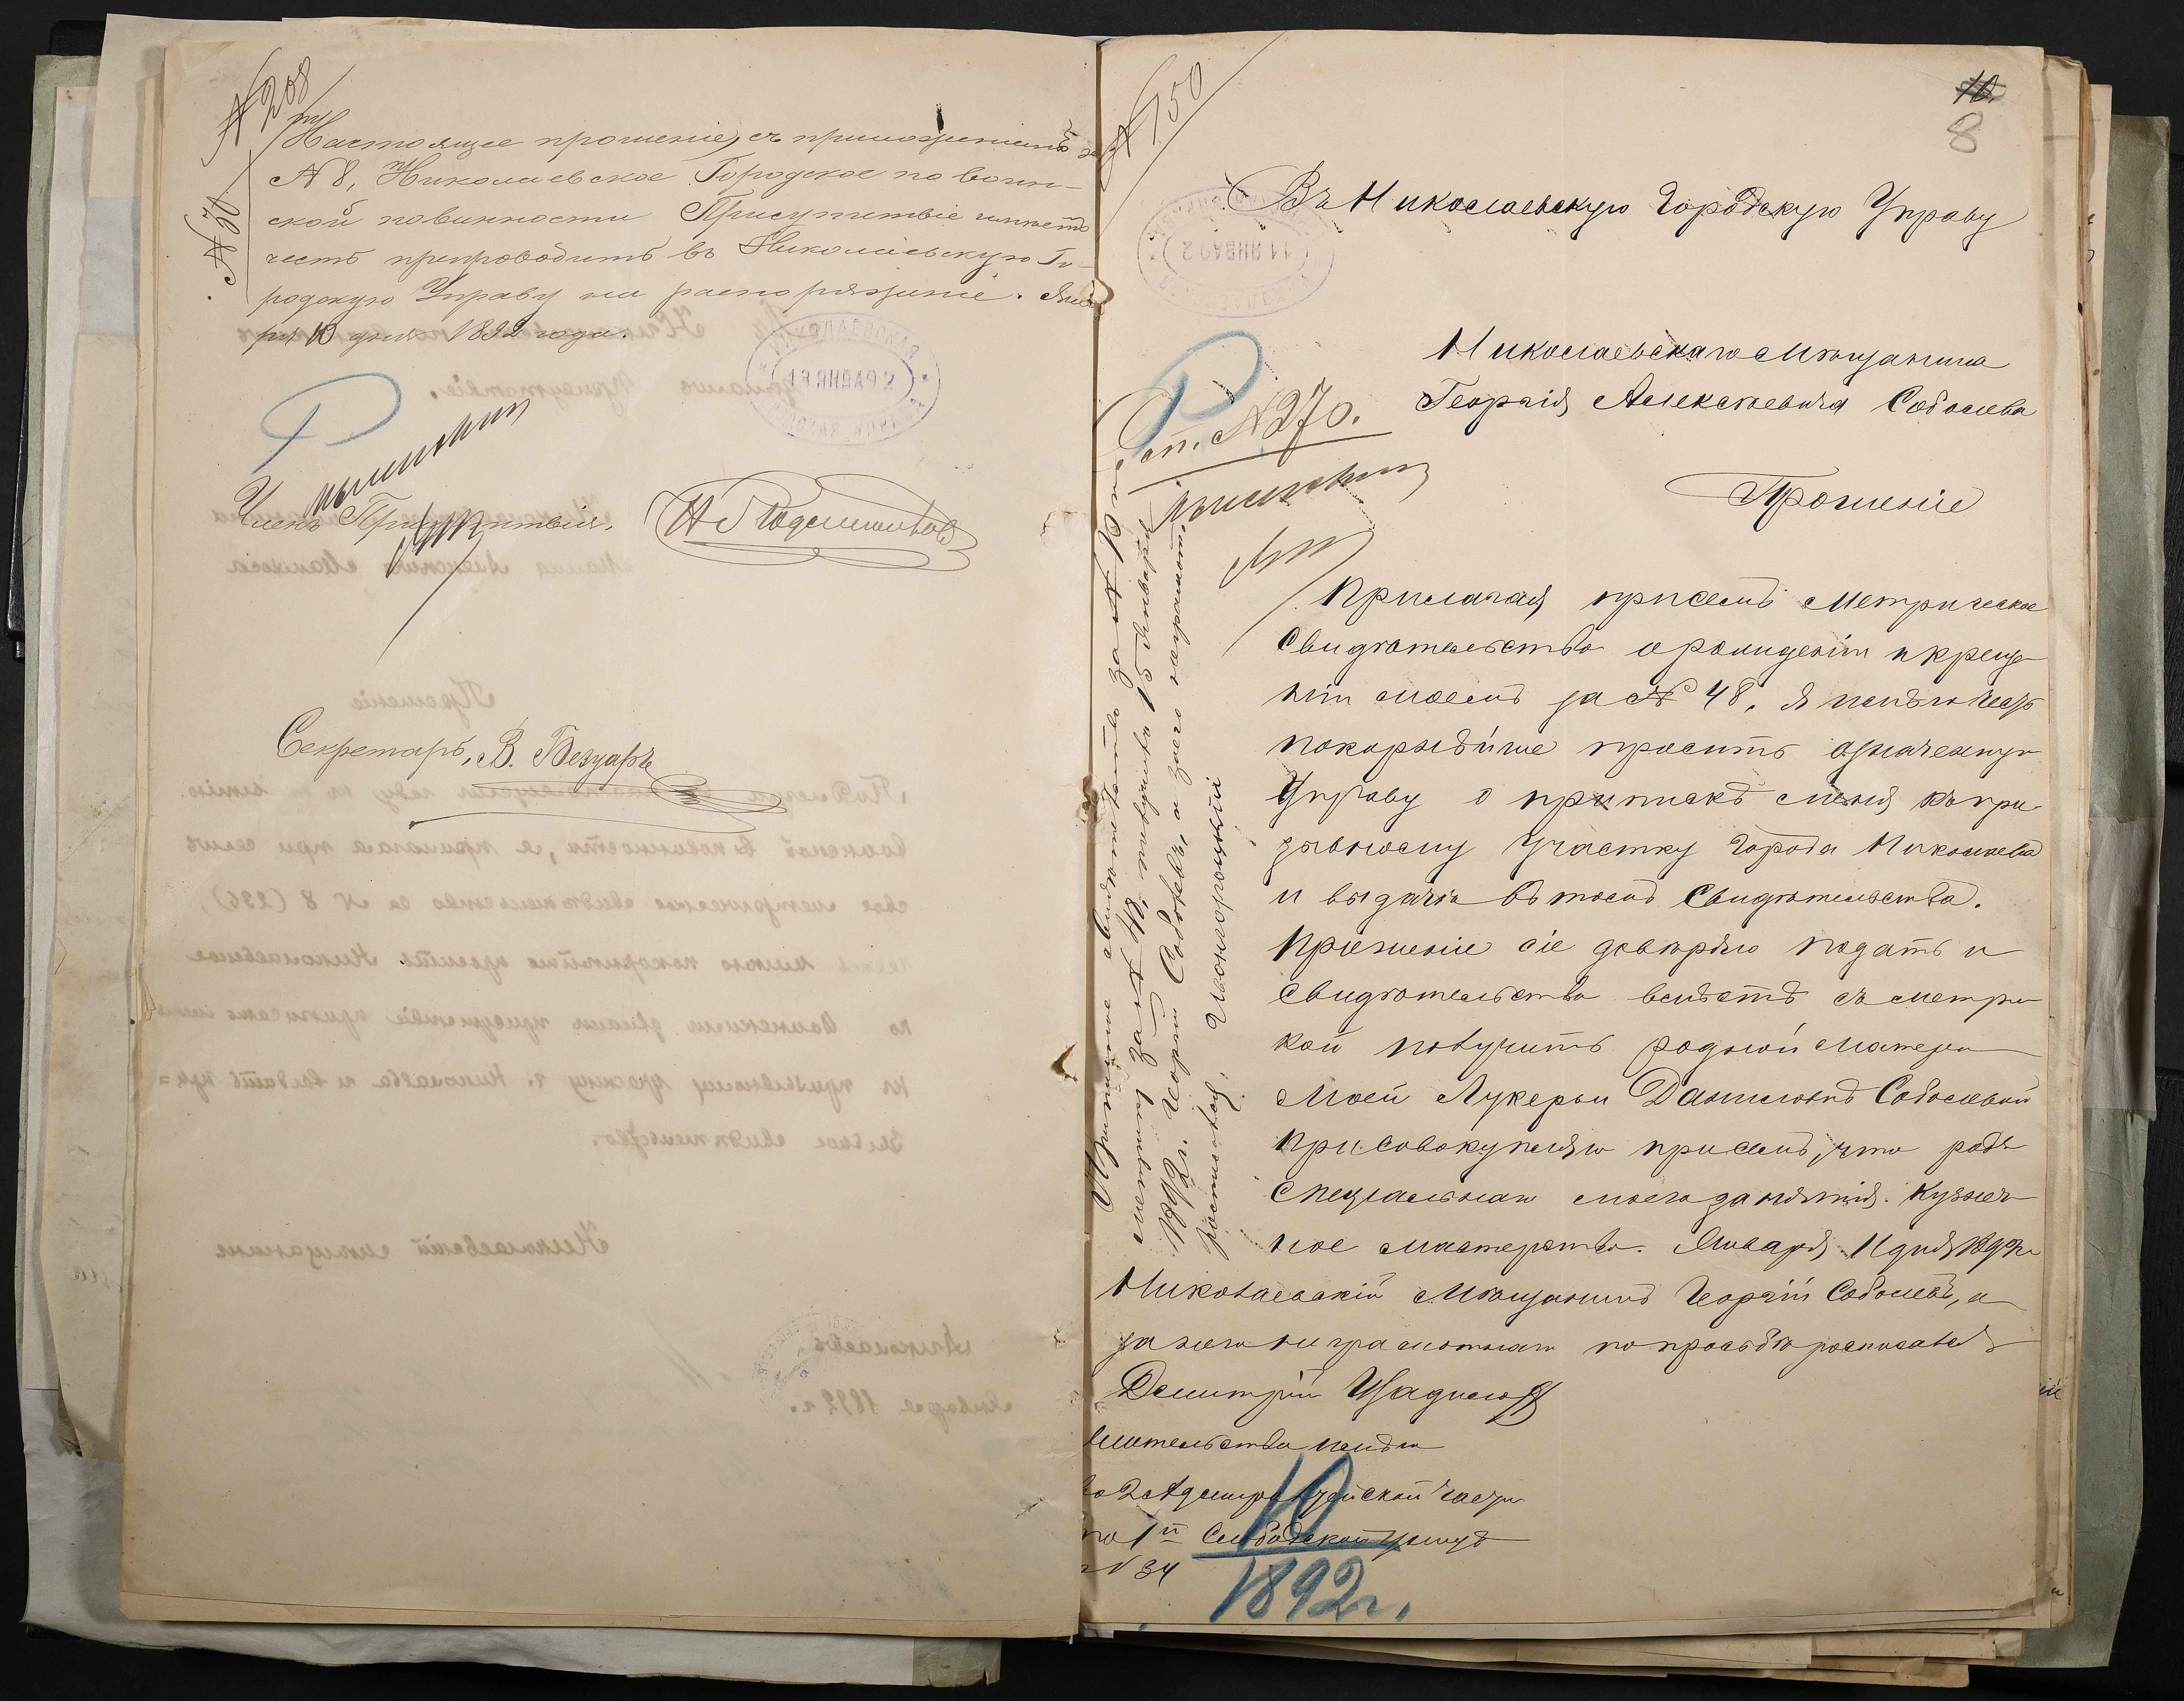 № 208
№ 30
Настоящее прошеніе, съ приложеніемъ за
№ 8, Николаевское Городское по воин-
ской повинности Присутствіе имѣетъ
честь препроводить въ Николаевскую Го-
родскую Управу на распоряженіе. Янва
ря 13 дня 1892 года.
НИКОЛАЕВСКАЯ
13 ЯНВА92
Членъ Присутствія,
Секретарь, В. Безуаръ
№ 150
10
8
Въ Николаевскую Городскую Управу
11 ЯНВА92
Николаевскаго мѣщанина
Георгія Алексѣевича Соболева
№ 270.
Прошеніе
Прилагая присемъ Метрическое
Свидѣтельство о рожденіи и креще
ніи моемъ за № 48, я имѣю честь
покорнѣйше просить означенную
Управу о припискѣ меня къ при
зывному участку Города Николаева
и выдачѣ въ томъ Свидѣтельства.
Прошеніе сіе довѣряю подать и
Свидѣтельство вмѣстѣ съ метри
кой получить родной матери
моей Лукерьи Даниловнѣ Соболевой
присовокупляю присемъ, что родъ
спеціальнаго моего занятія. Кузнеч
ное мастерство. Января 11 дня 1892 г
Николаевскій Мѣщанинъ Георгій Соболевъ, а
за него неграмотнаго по просьбѣ росписался
Дмитрій
Жительство имѣю
во 2 Адмиралтейской части
по 1й Слободской улицѣ
№ 34
Приписное свидѣтельство за №
метрику за № 48. получилъ 15 Января
1892 г. Георгій Соболевъ, а за него неграмотн.
росписался
10
1892 г.